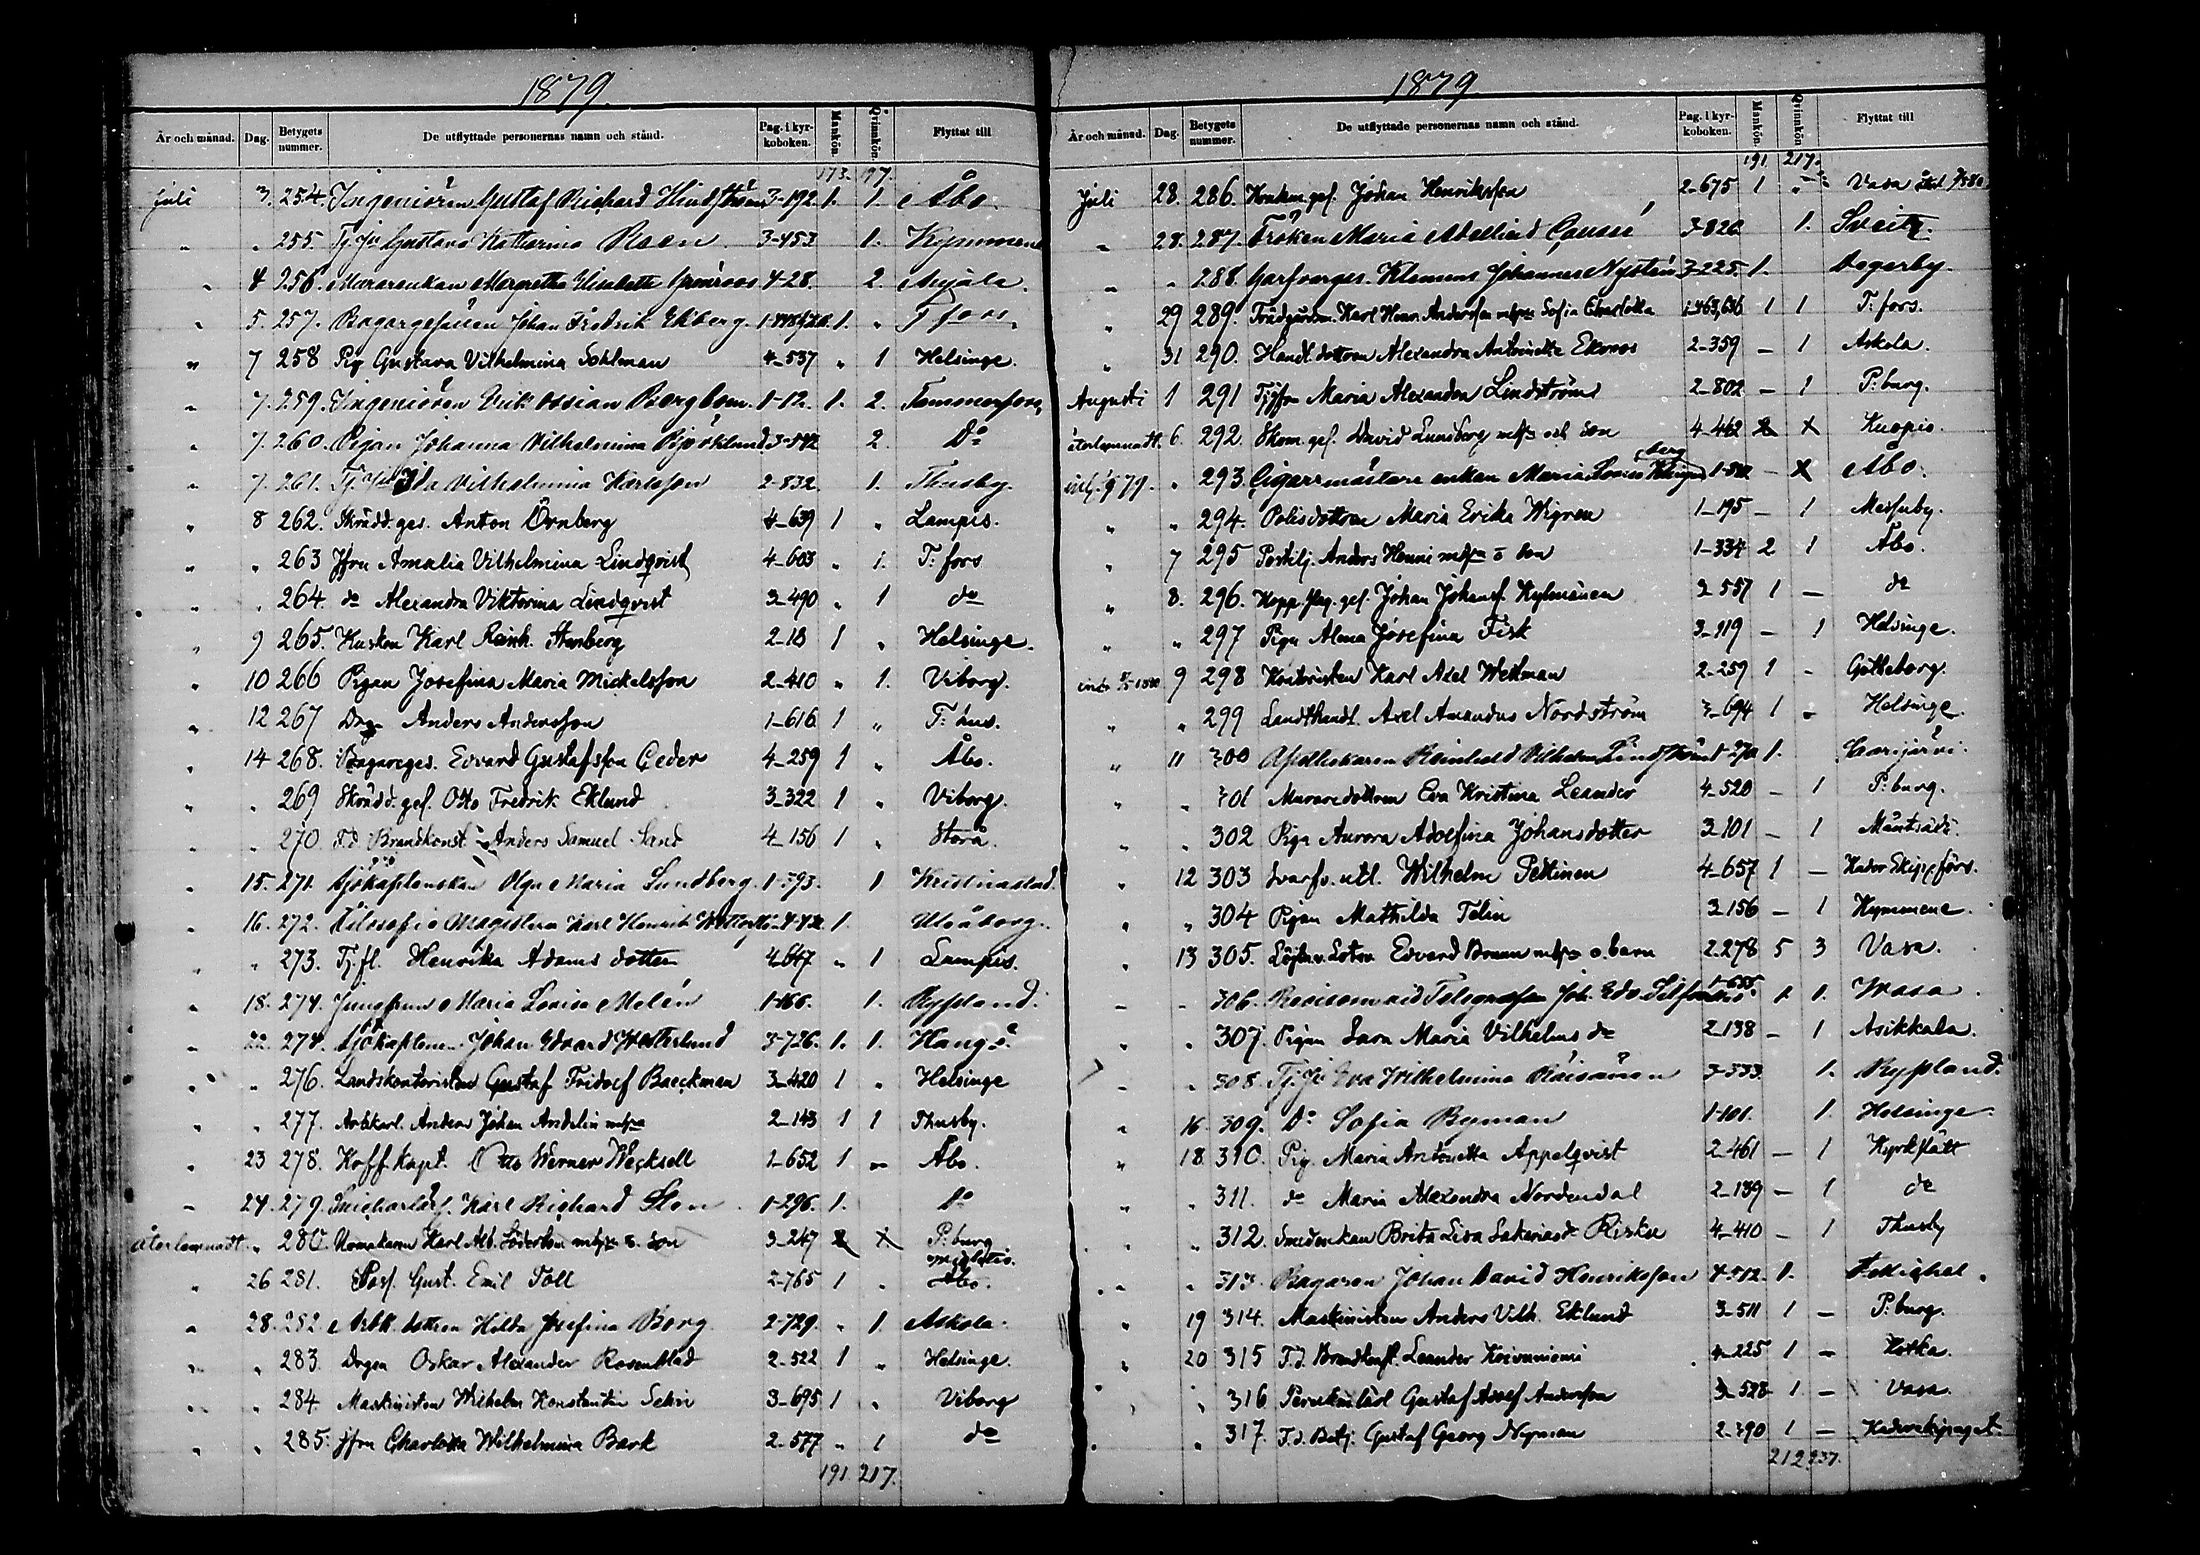 1879.
År och månad. Dag. Betygets nummer. De utflyttade personernas namn och stånd. Pag. i kyrkoboken. Mankön. Qvinnkön. Flyttat till
173. 197.
Juli 3. 254. Ingeniören Gustaf Richard Hindström 3-192. 1. 1. Åbo
" " 255. Tj. Gustava Katharina Roen 3-453 1. Kymmene
" 4 256. Murarenkan Margretha Elisabeth Grönroos 4-28. 2. Anjala.
" 5. 257. Bagargesällen Johan Fredrik Ekberg. 1. " T:fors
" 7 258 Pig Gustava Vilhelmina Sohlman 4-537 " 1 Helsinge.
" 7. 259. Ingeniören Erik Ossian Bergbom. 1-12. 1. 2. Tammerfors
" 7. 260. Pigan Johanna Vilhelmina Björklund 3-542 2. Do
" 7. 261. Ida Vilhelmina Karlsson 2-832 1. Thusby
" 8 262. Skrädd. ges. Anton Örnberg 4-639 1 " Lampis.
" " 263 Jfru Amalia Vilhelmina Lindqvist 4-603 " 1. T:fors
" " 264. do Alexandra Viktorina Lindqvist 3-490 " 1 do
" 9 265. Kusken Karl Reinh. Stenberg 2-18 1 " Helsinge.
" 10 266 Pigan Josefina Maria Mickelsson 2-410 " 1. Viborg.
" 12 267 Drg Anders Andersson 1-616 1 " T:hus.
" 14 268. Bagareges. Edvard Gustafsson Ceder 4-259 1 " Åbo.
" " 269 Skrädd. ges. Otto Fredrik Eklund 3-322 1 " Viborg.
" " 270 f.d. Brandkonst. Anders Samuel Sand 4-156 1 " Storå.
" 15. 271. Sjökaptenskan Olga Maria Sundberg. 1-393. 1 Kristinastad.
" 16. 272. Filosofie Magistern Karl Henrik 1. Uleåborg.
" " 273. Tj.fl. Henrika Adamsdotter 4-647 " 1 Lampis.
" 18. 274. Jungfrun Maria Lovisa Melén 1-166. 1. Ryssland.
" 22. 274. Sjökaptenen Johan Edvard Westerlund 3-726. 1. 1. Hangö.
" " 276. Landskontoristen Gustaf Fridolf Baeckman 3-420 1 " Helsinge
" " 277. Arbkarl. Anders Johan Andelin m. hu 2-143 1 1 Thusby.
" 23 278. Hoff. Kapt. Otto Werner Wecksell 1-652 1 " Åbo.
" 24. 279. Karl Richard Sten 1-296. 1. do
återlemnadt. " 280. Karl Alb. Söderbom m. hu o. son 3-247 P:burg
" 26 281. Gust. Emil Toll 2-765 1 " Åbo.
" 28. 282. Arbk. dottren Hilda Josefina Berg 2-729. " 1. Askola.
" " 283. Drgen Oskar Alexander Rosenblad 2-522 1 " Helsinge.
" " 284 Maskinisten Wilhelm Konstantin Selin 3-695 1 " Viborg
" " 285. Jfru Charlotta Wilhelmina Bark 2-577 " 1 do
191. 217.
1879
År och månad. Dag. Betygets nummer. De utflyttade personernas namn och stånd. Pag. i kyrkoboken. Mankön. Qvinnkön Flyttat till
191 217.
Juli 28. 286. Johan Henriksson 2-675 1 " Vasa
" 28. 287. Fröken Maria Adelaid 3-826 1. Sveitz.
" " 288. Garfvarges. Klemens Johannes Nystén 3-225. 1. Degerby.
" 29 289. Trädgårdsm. Karl Henr. Andersson m. hu Sofia Charlotta 1-463,636 1 1 T:fors.
" 31 290. Handl. dottren Alexandra Antoinette Ekroos 2-359 – 1 Askola.
Augusti 1 291 Tjfru Maria Alexandra Lindström 2-802 – 1 P:burg.
återlemnadt. 6. 292. Skom. ges. David Lundberg m. hu och son 4-462 x Kuopio.
" 293. Cigarrmästare enkan Maria Lovisa Klingberg – x Åbo.
" " 294. Polisdottren Maria Erika Wigren 1-195 – 1 Messuby.
" 7 295 Postilj. Anders Henni m. hu o son 1-334 2 1 Åbo.
" 8. 296. Johan Johans. Kylmänen 3-557 1 – do
" " 297 Piga Alma Josefina Fisk 3-119 – 1 Helsinge.
9 298 Kontoristen Karl Axel Wekman 2-259 1 – Götteborg.
" " 299 Landthandl. Axel Amandus Nordström 3-694 1 – Helsinge.
" 11 300 Apothekaren Reinhold Vilhelm Lindström 1. Saarijärvi.
" " 301 Muraredottren Eva Kristina Leander 4-520 – 1 P:burg.
" " 302 Piga Aurora Adolfina Johansdotter 3-101 – 1 Mäntsälä.
" 12 303 Svarfv. utl. Wilhelm Pettinen 4-657 1 –
" " 304 Pigan Mathilda Telin 3-156 – 1 Kymmene.
" 13 305. Edvard Broman m. hu o. barn 2-278 5 3 Vasa.
" " 306. Revisorn vid Telegrafen Joh. Edv. 1-655. 1. 1. Wasa.
" " 307. Pigan Sara Maria Vilhelms dr 2-138 – 1 Asikkala.
" " 308. Eva Wilhelmina Räisänen 3-333 1. Ryssland.
" 16. 309. Do Sofia Byman 1-101. 1. Helsinge
" 18. 310. Pig. Maria Antonetta Appelqvist 2-461 – 1 Kyrkslätt
" " 311. do Maria Alexandra Nordendal 2-139 – 1 do
" " 312. Smedenkan Brita Lisa Sakariasdr Riska 4-410 – 1 Thusby
" " 313. Bagaren Johan David Henriksson 4-512. 1.
" 19 314. Maskinisten Anders Vilh. Eklund 3-511 1 – P:burg.
" 20 315 F.d. Brandkonst. Leander Koivuniemi 4-225 1 – Kotka.
" " 316 Gustaf Adolf Andersson 3-528 1 – Vasa.
" " 317. F.d. Betj. Gustaf Georg Nyman 2-390 1 –
212 237.